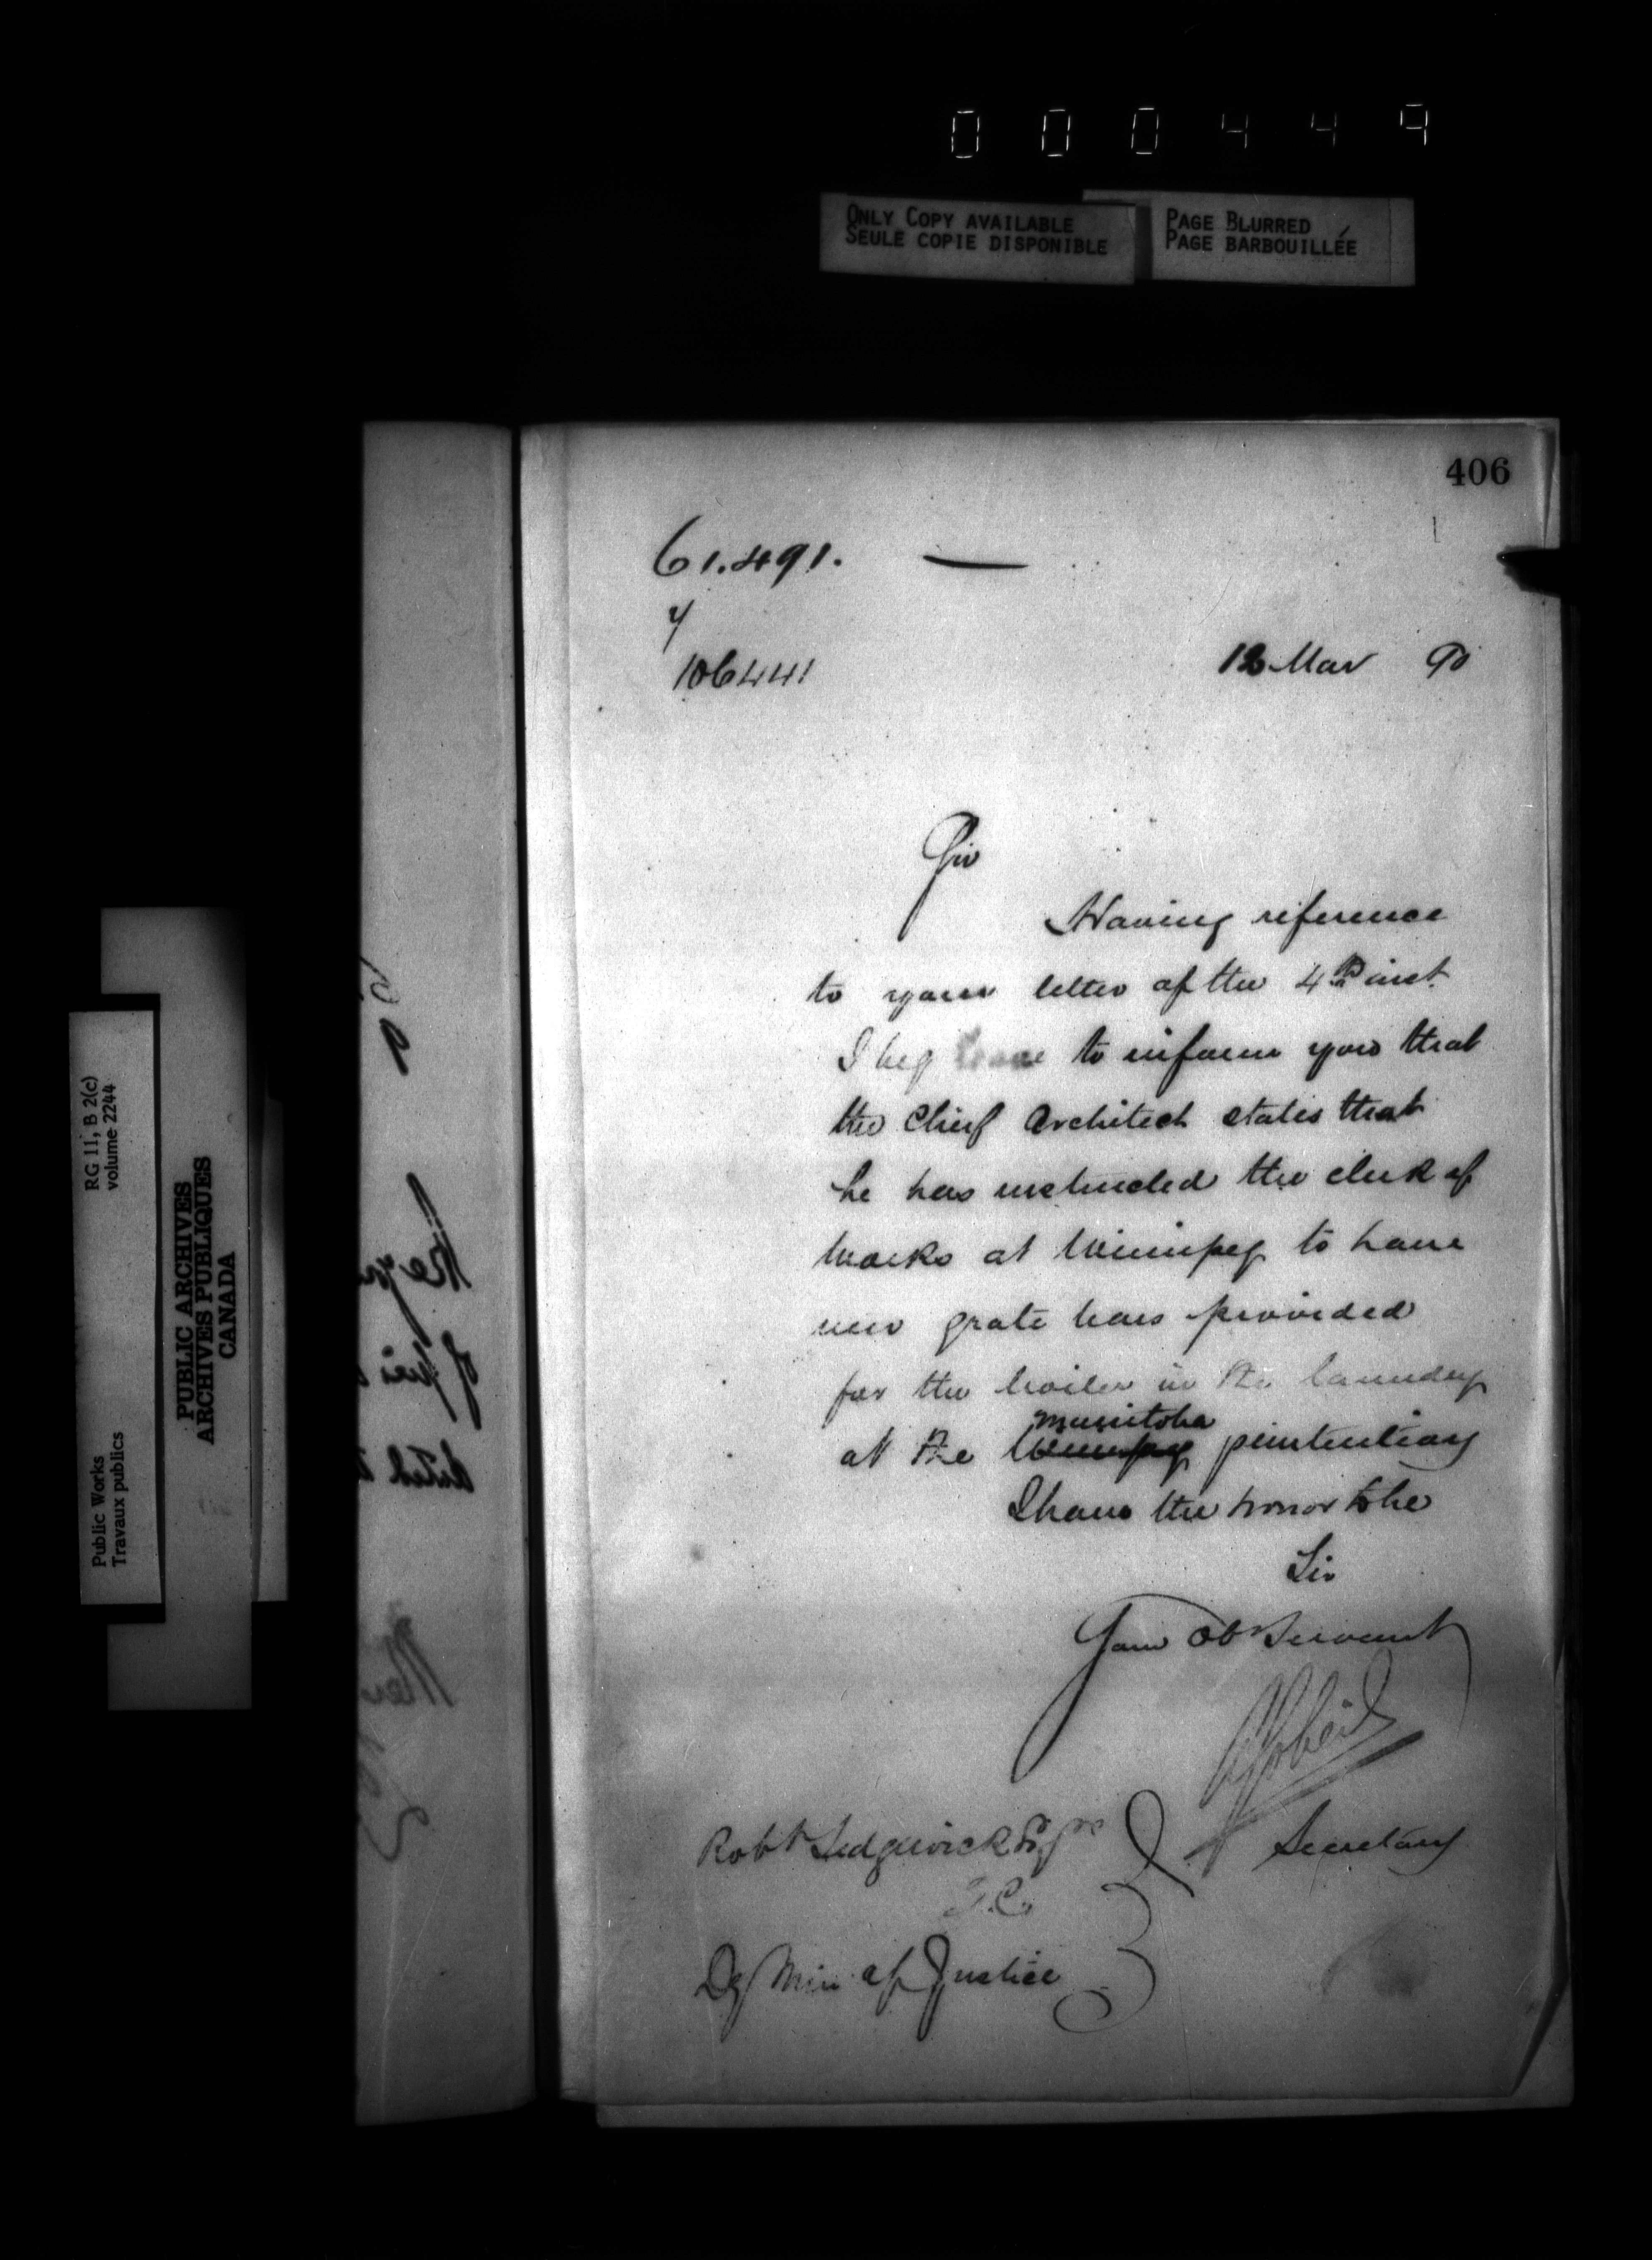 000449
ONLY COPY AVAILABLE
SEULE COPIE DISPONIBLE
PAGE BLURRED
PAGE BARBOUILLÉE
406
61.491. —
106441
Mar 90
Sir
Having reference
to your letter of the 4th inst.
I beg leave to inform you that
the Chief Architect states that
he has instructed the clerk of
works at Winnipeg to have
new grate bars provided
for the boiler in the laundry
Manitoba
at the Winnipeg penitentiary
I have the honor to be
Sir
Your Obt Servant
Secretary
Robt Sedgwick Esqre
Dy Min of Justice
RG 11, B 2(c)
volume 2244
Public Works
Travaux publics
PUBLIC ARCHIVES
ARCHIVES PUBLIQUES
CANADA